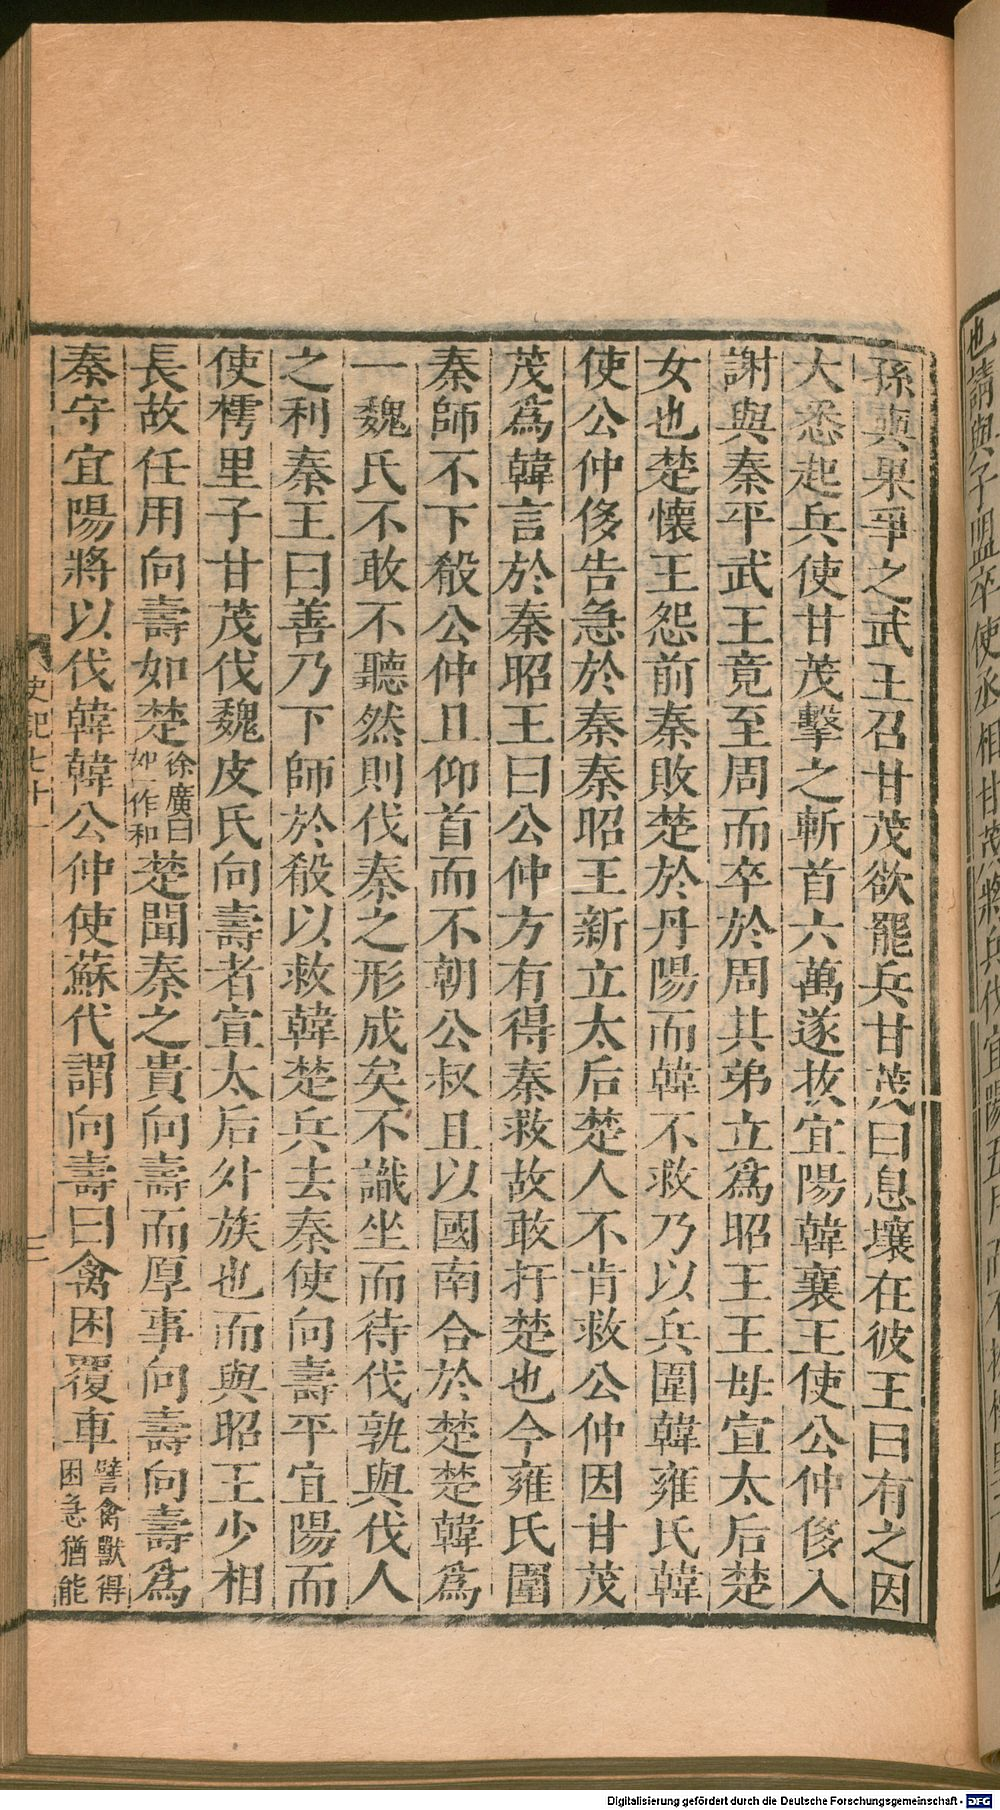 也請與子盟卒使丞相甘茂將兵伐宜陽五月而不拔
孫奭果爭之武王召甘茂欲罷兵甘茂曰息壤在彼王曰有之因
大悉起兵使甘茂擊之斬首六萬遂拔宜陽韓襄王使公仲侈入
謝與秦平武王竟至周而卒於周其弟立爲昭王王母宣太后楚
女也楚懷王怨前秦敗楚於丹陽而韓不救乃以兵圍韓雍氏韓
使公仲侈告急於秦秦昭王新立太后楚人不肯救公仲因甘茂
茂爲韓言於秦昭王曰公仲方有得秦救故敢扞楚也今雍氏圍
秦師不下殽公仲且仰首而不朝公叔且以國南合於楚楚韓爲
一魏氏不敢不聽然則伐秦之形成矣不識坐而待伐孰與伐人
之利秦王曰善乃下師於殽以救韓楚兵去秦使向壽平宜陽而
使樗里子甘茂伐魏皮氏向壽者宣太后外族也而與昭王少相
長故任用向壽如楚徐廣曰如一作和楚聞秦之貴向壽而厚事向壽向壽爲
秦守宜陽將以伐韓韓公仲使蘇代謂向壽曰禽困覆車譬禽獸得困急猶能
史記七十一
三
Digitalisierung gefördert durch die Deutsche Forschungsgemeinschaft - DFG